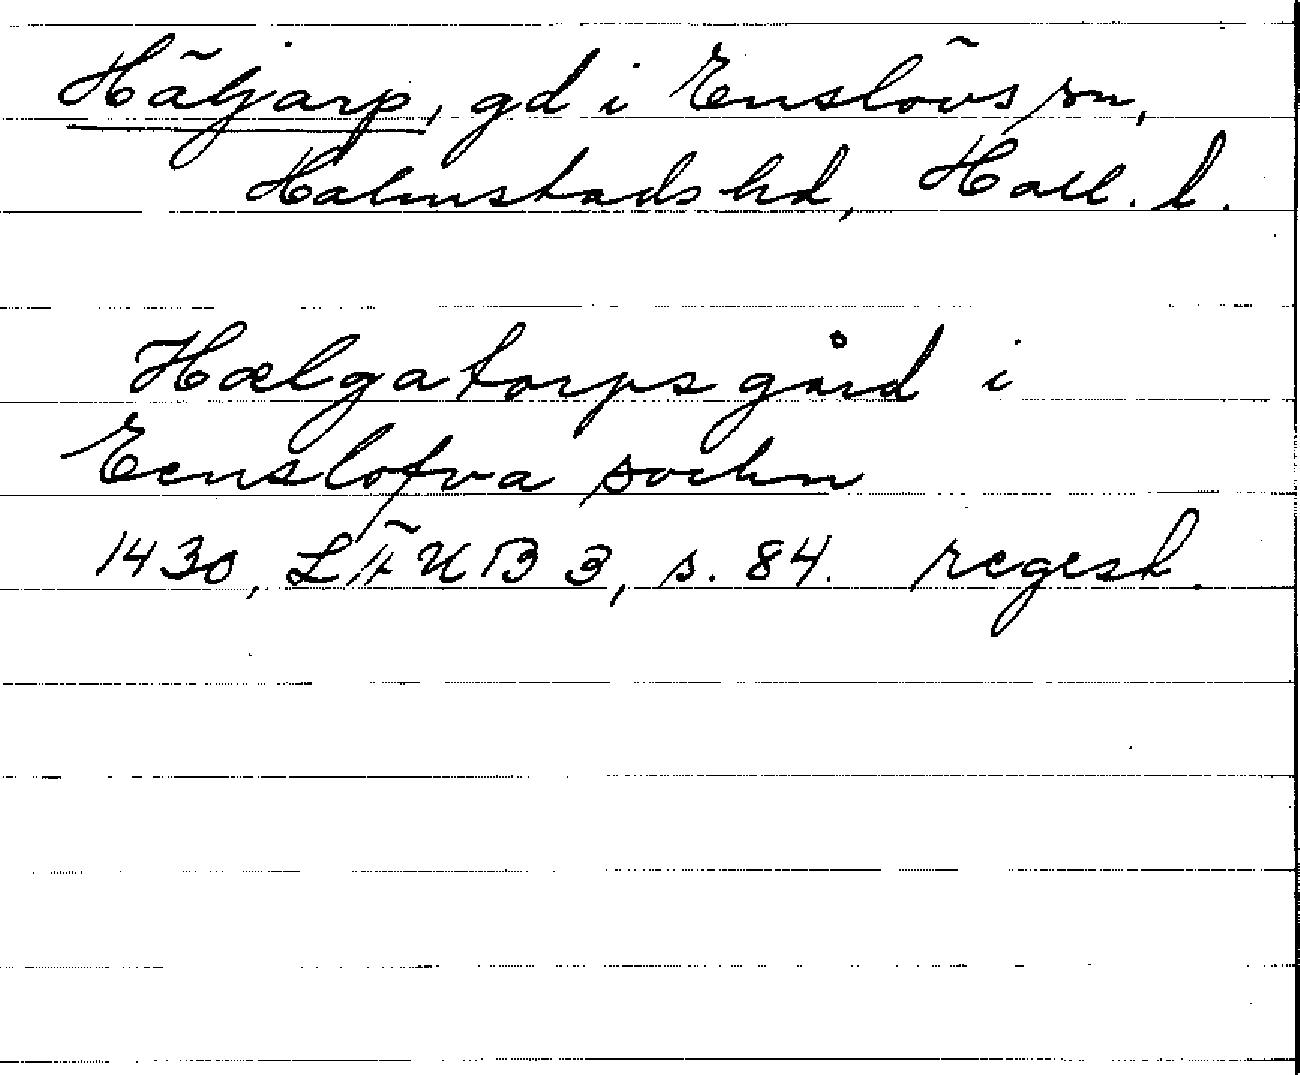 Häljarp, gd i Enslövs sn,
Halmstads hd, Hall. l.
Hælgatorps gård i
Eenslofva sochn
1430, LÄUB 3, s. 84. regest.